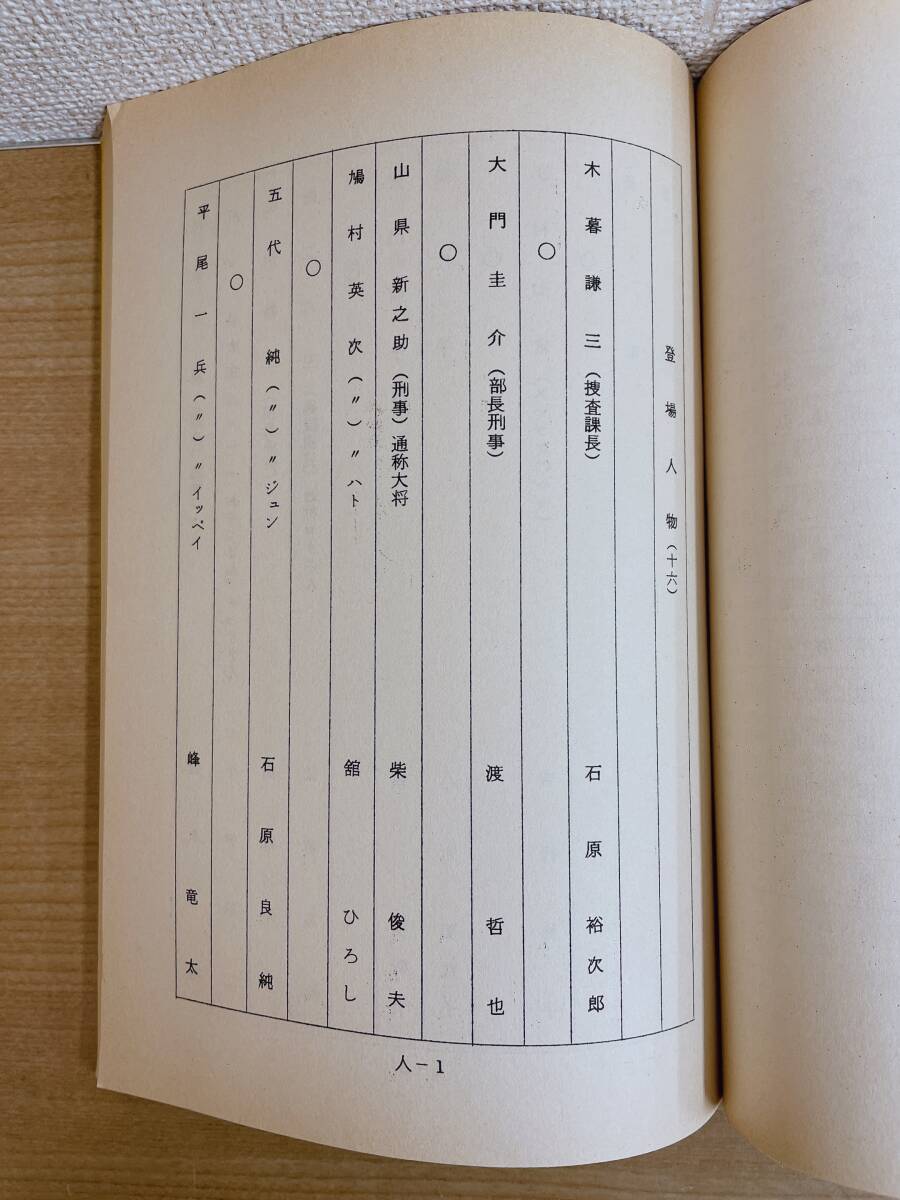 登場人物（十六）
木暮謙三（捜査課長）　石原裕次郎
○
大門圭介（部長刑事）　渡哲也
○
山県新之助（刑事）通称大将　柴俊夫
鳩村英次（〃）〃ハト　舘ひろし
○
五代純（〃）〃ジュン　石原良純
○
平尾一兵（〃）〃イッペイ　峰竜太
人－1